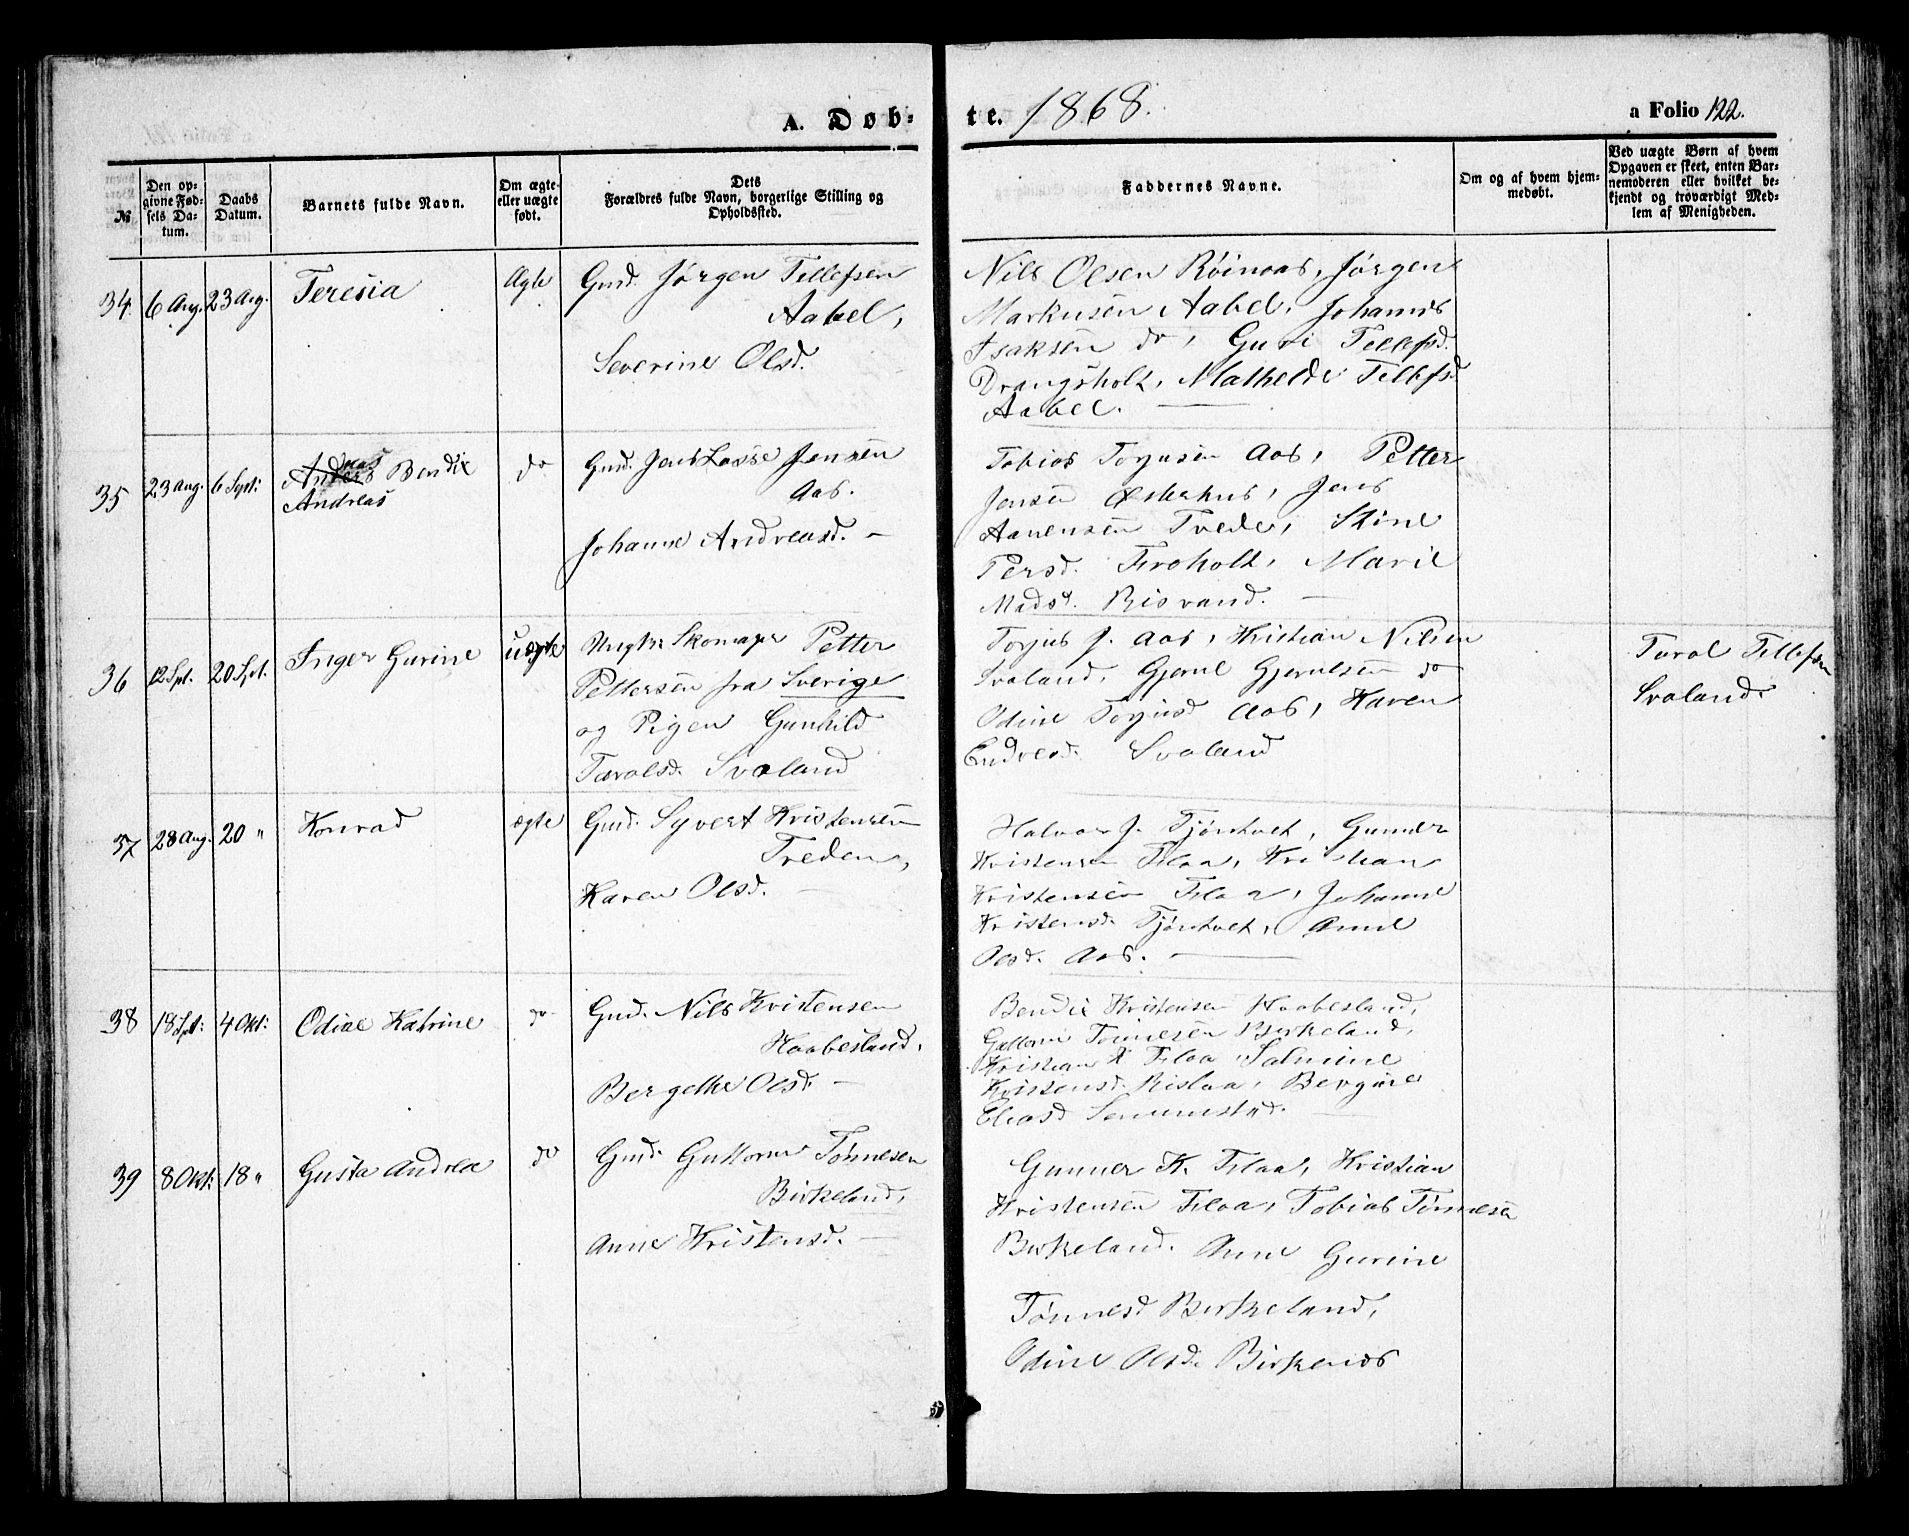 A. Døb-
te. 1868.
a Folio 122.
№
Den op-
givne Fød-
sels Da-
tum.
Daabs
Datum.
Barnets fulde Navn.
Om ægte
eller uægte
født.
Dets
Forældres fulde Navn, borgerlige Stilling og
Opholdssted.
Faddernes Navne.
Om og af hvem hjem-
medøbt.
Ved uægte Børn af hvem
Opgaven er skeet, enten Bar-
nemoderen eller hvilket be-
kjendt og troværdigt Med-
lem af Menigheden.
34. 6 Aug. 23 Aug. Teresia Ægte Gmd. Jørgen Tellefsen
Aabel,
Severine Olsd.
Nils Olsen Røinaas, Jørgen
Markusen Aabel, Johannes
Isaksen do, Guri Tellefsd.
Drangsholt, Mathelde Tellefsd
Aabel.
35 23 Aug. 6 Sept: Anders Bendix
Andreas
do Gmd. Jens Lasse Jensen
Aas.
Johanne Andreasd. –
Tobias Torjusen Aas, Petter
Jensen Østerhus, Jens
Aanensen Trede, Stine
Persd. Froholt, Marie
Madsd. Risvand. –
36 12 Spt. 20 Spt. Inger Gurine uægte Ungk. Skomager Petter
Pettersen fra Sverige
og Pigen Gunhild
Taralsd. Svaland
Torjus J. Aas, Kristian Nilsen
Svaland, Gjerul Gjerulsen do
Odine Torjusd Aas, Karen
Endresd. Svaland
Taral Tellefsen
Svaland.
37 28 Aug. 20 " Konrad ægte Gmd. Syvert Kristensen
Treden,
Karen Olsd. –
Halvor J. Tjøntvet, Gunder
Kristensen Flaa, Kristian
Kristensen Flaa, Johanne
Kristensd. Tjøntvet, Anne
Olsd. Aas. –
38 18 Spt: 4 Okt: Odine Katrine do Gmd. Nils Kristensen
Haabesland,
Bergethe Olsd. –
Bendix Kristensen Haabesland,
Guttorm Tønnesen Birkeland,
Kristian K Flaa, Salmine
Kristensd. Rislaa, Bergine
Eliasd
39 8 Okt: 18 " Gusta Andrea do Gmd. Guttorm Tønnesen
Birkeland,
Anne Kristensd. –
Gunner K. Flaa, Kristian
Kristensen Flaa, Tobias Tønnesen
Birkeland. Anne Gurine
Tønnesd Birkeland,
Odine Olsd. Birkenes